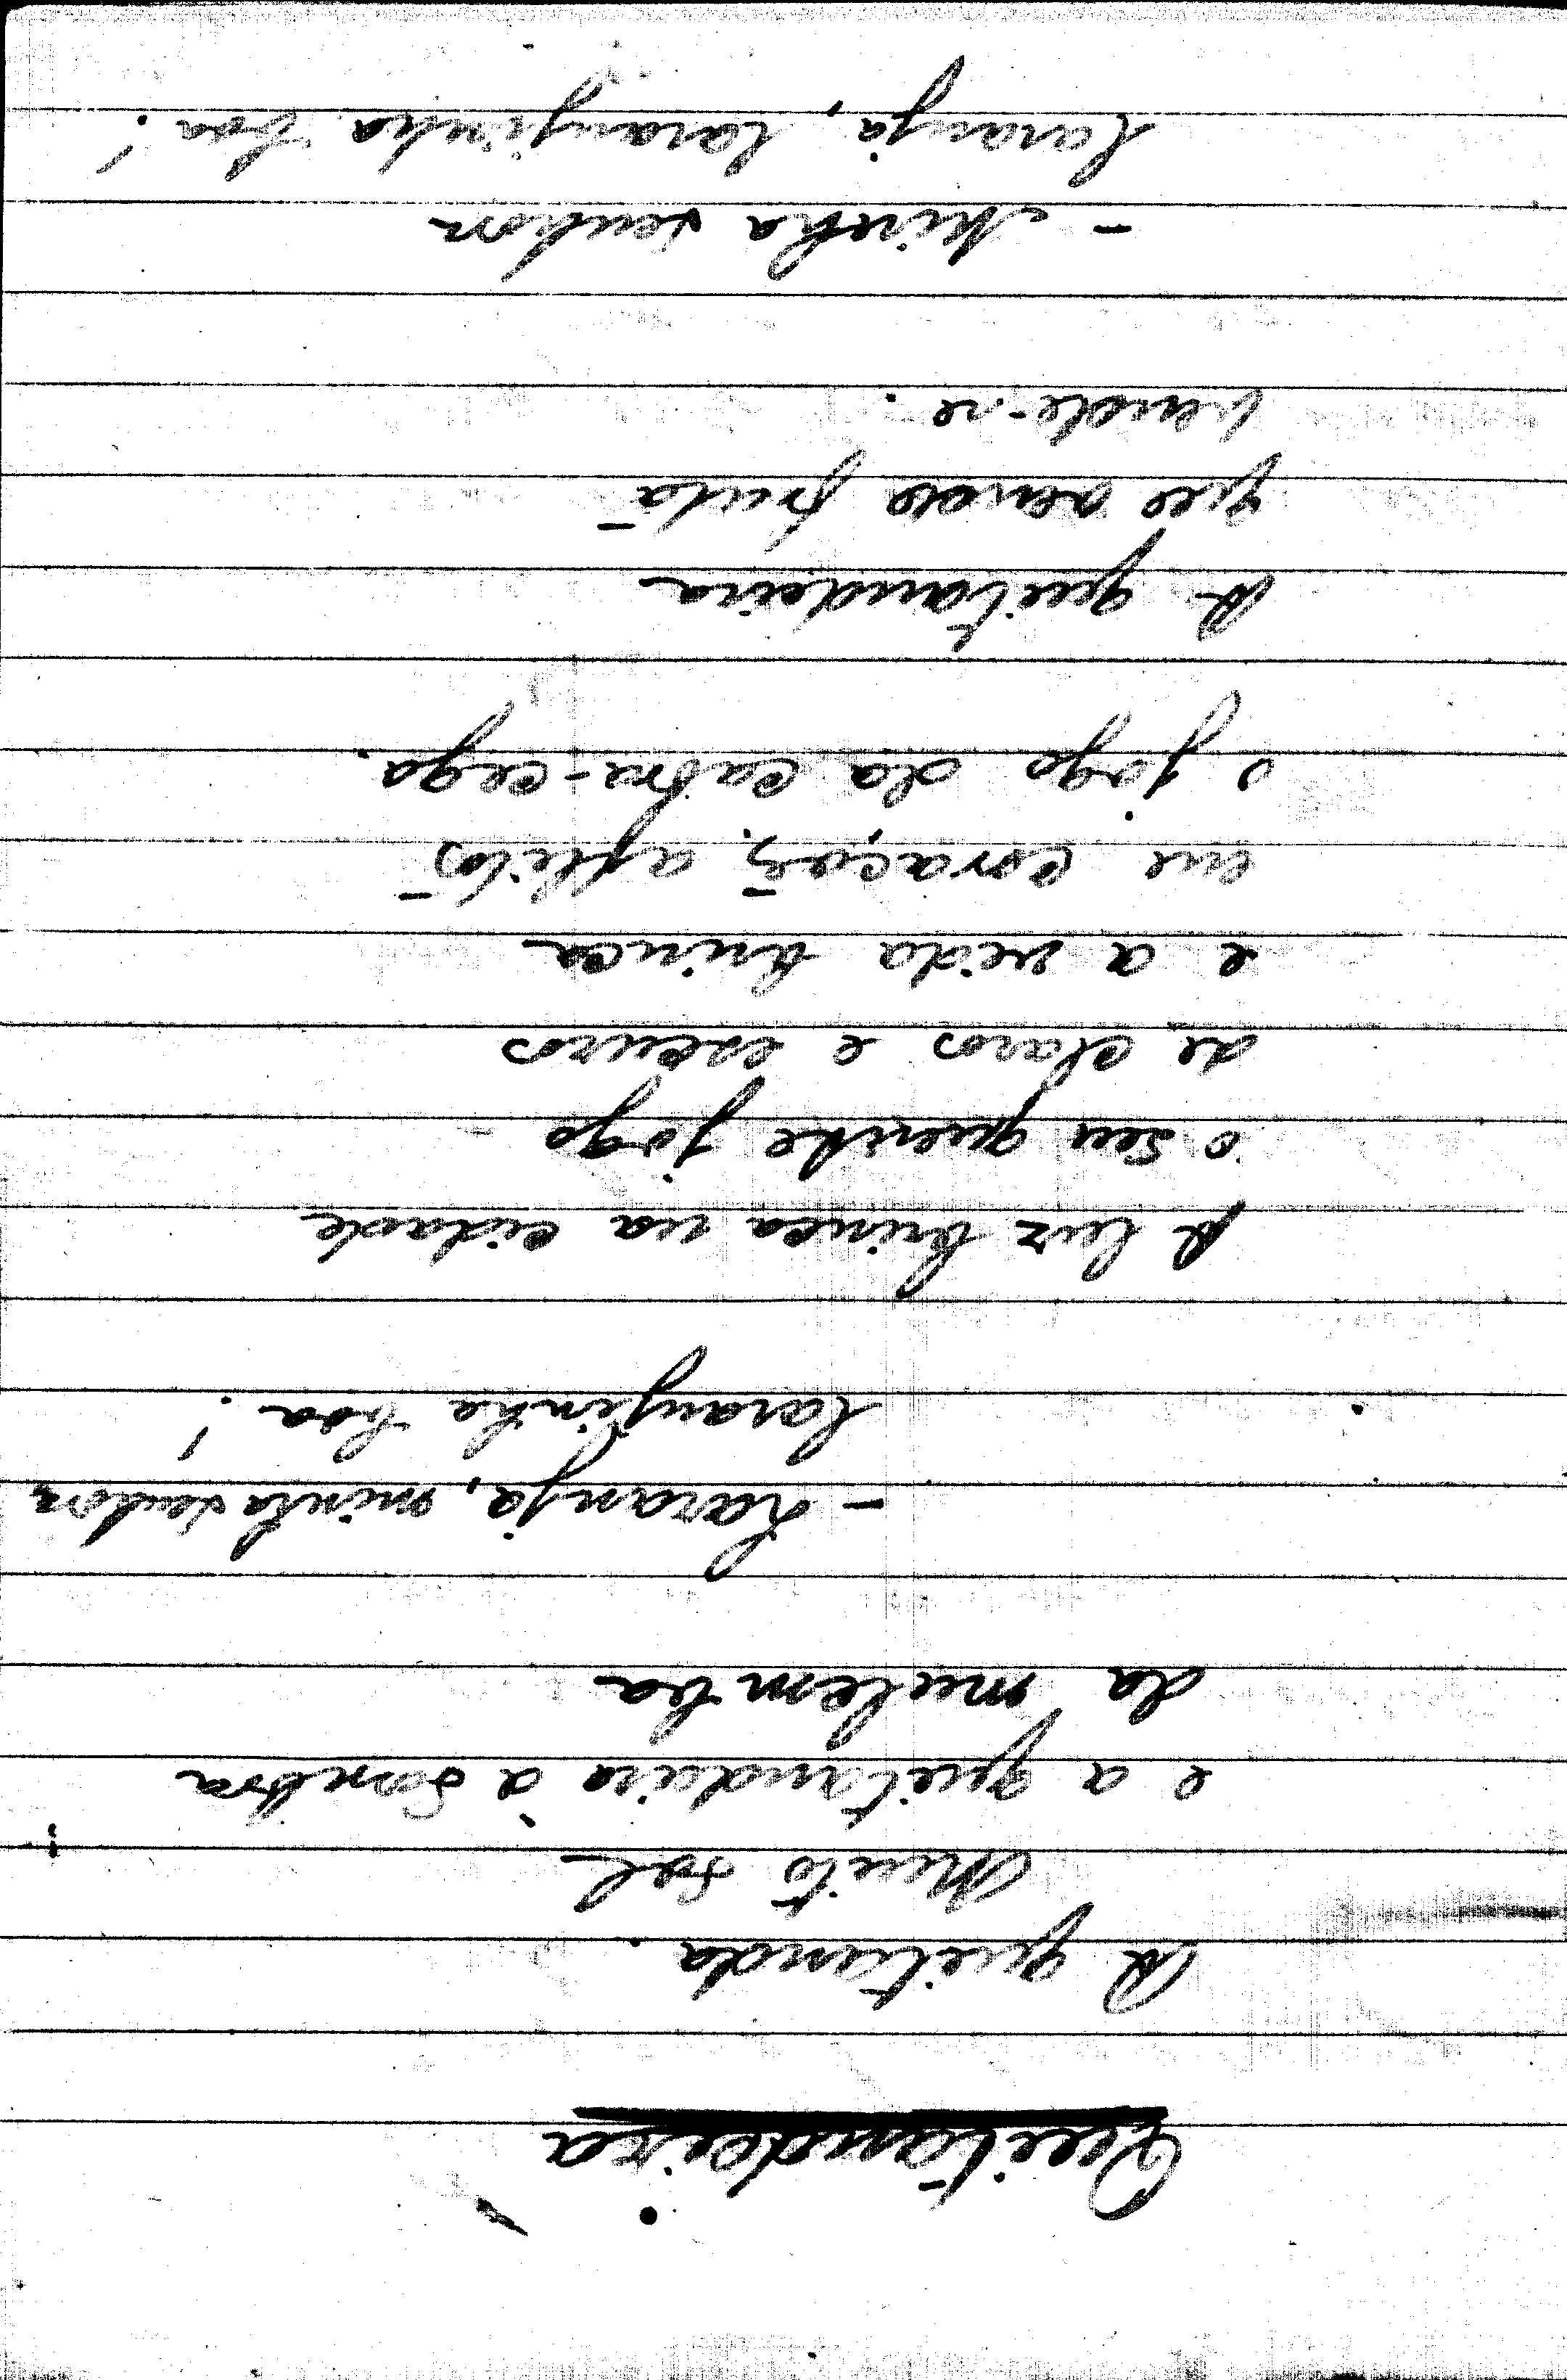 Quitandeira
A quitanda.
Muito sol
e a quitandeira à sombra
da mulemba
- Laranja, minha senhora
laranjinha boa!
A luz brinca na cidade
o seu quente jogo
de claros e escuros
e a vida brinca
em corações aflitos
o jogo da cabra-cega.
A quitandeira
que vende fruta
vende-se.
- Minha senhora
laranja, laranjinha boa!